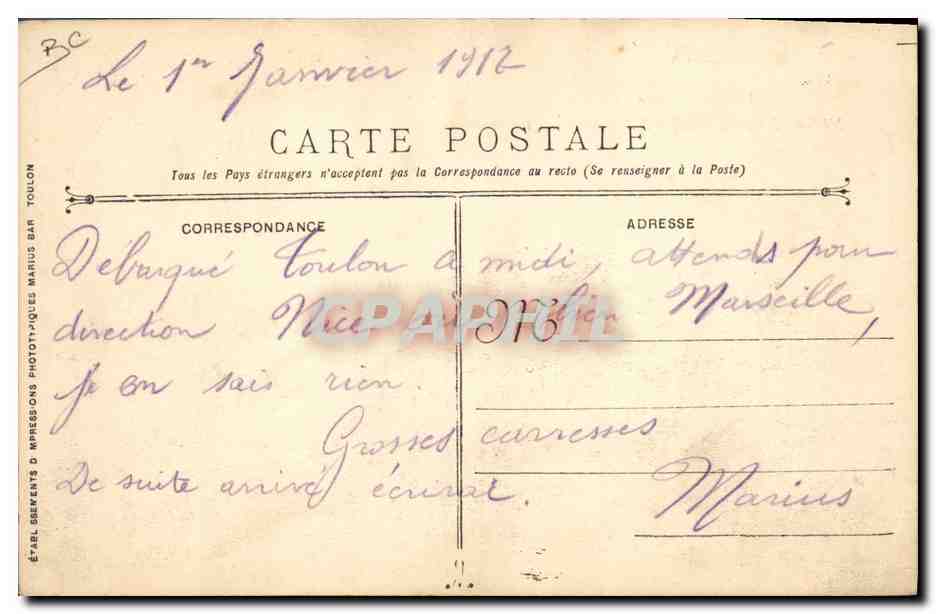 BC
Le 1er Janvier 1912
CARTE POSTALE
Tous les Pays étrangers n'acceptent pas la Correspondance au recto (Se renseigner à la Poste)
CORRESPONDANCE
ADRESSE
Débarqué Toulon a midi, attends pour
direction Nice ou bien Marseille,
je en sais rien.
Grosses carresses
De suite arrivé écrirai.
Marius
M
CPAPHIL
ÉTABLISSEMENTS D'IMPRESSIONS PHOTOTYPIQUES MARIUS BAR TOULON